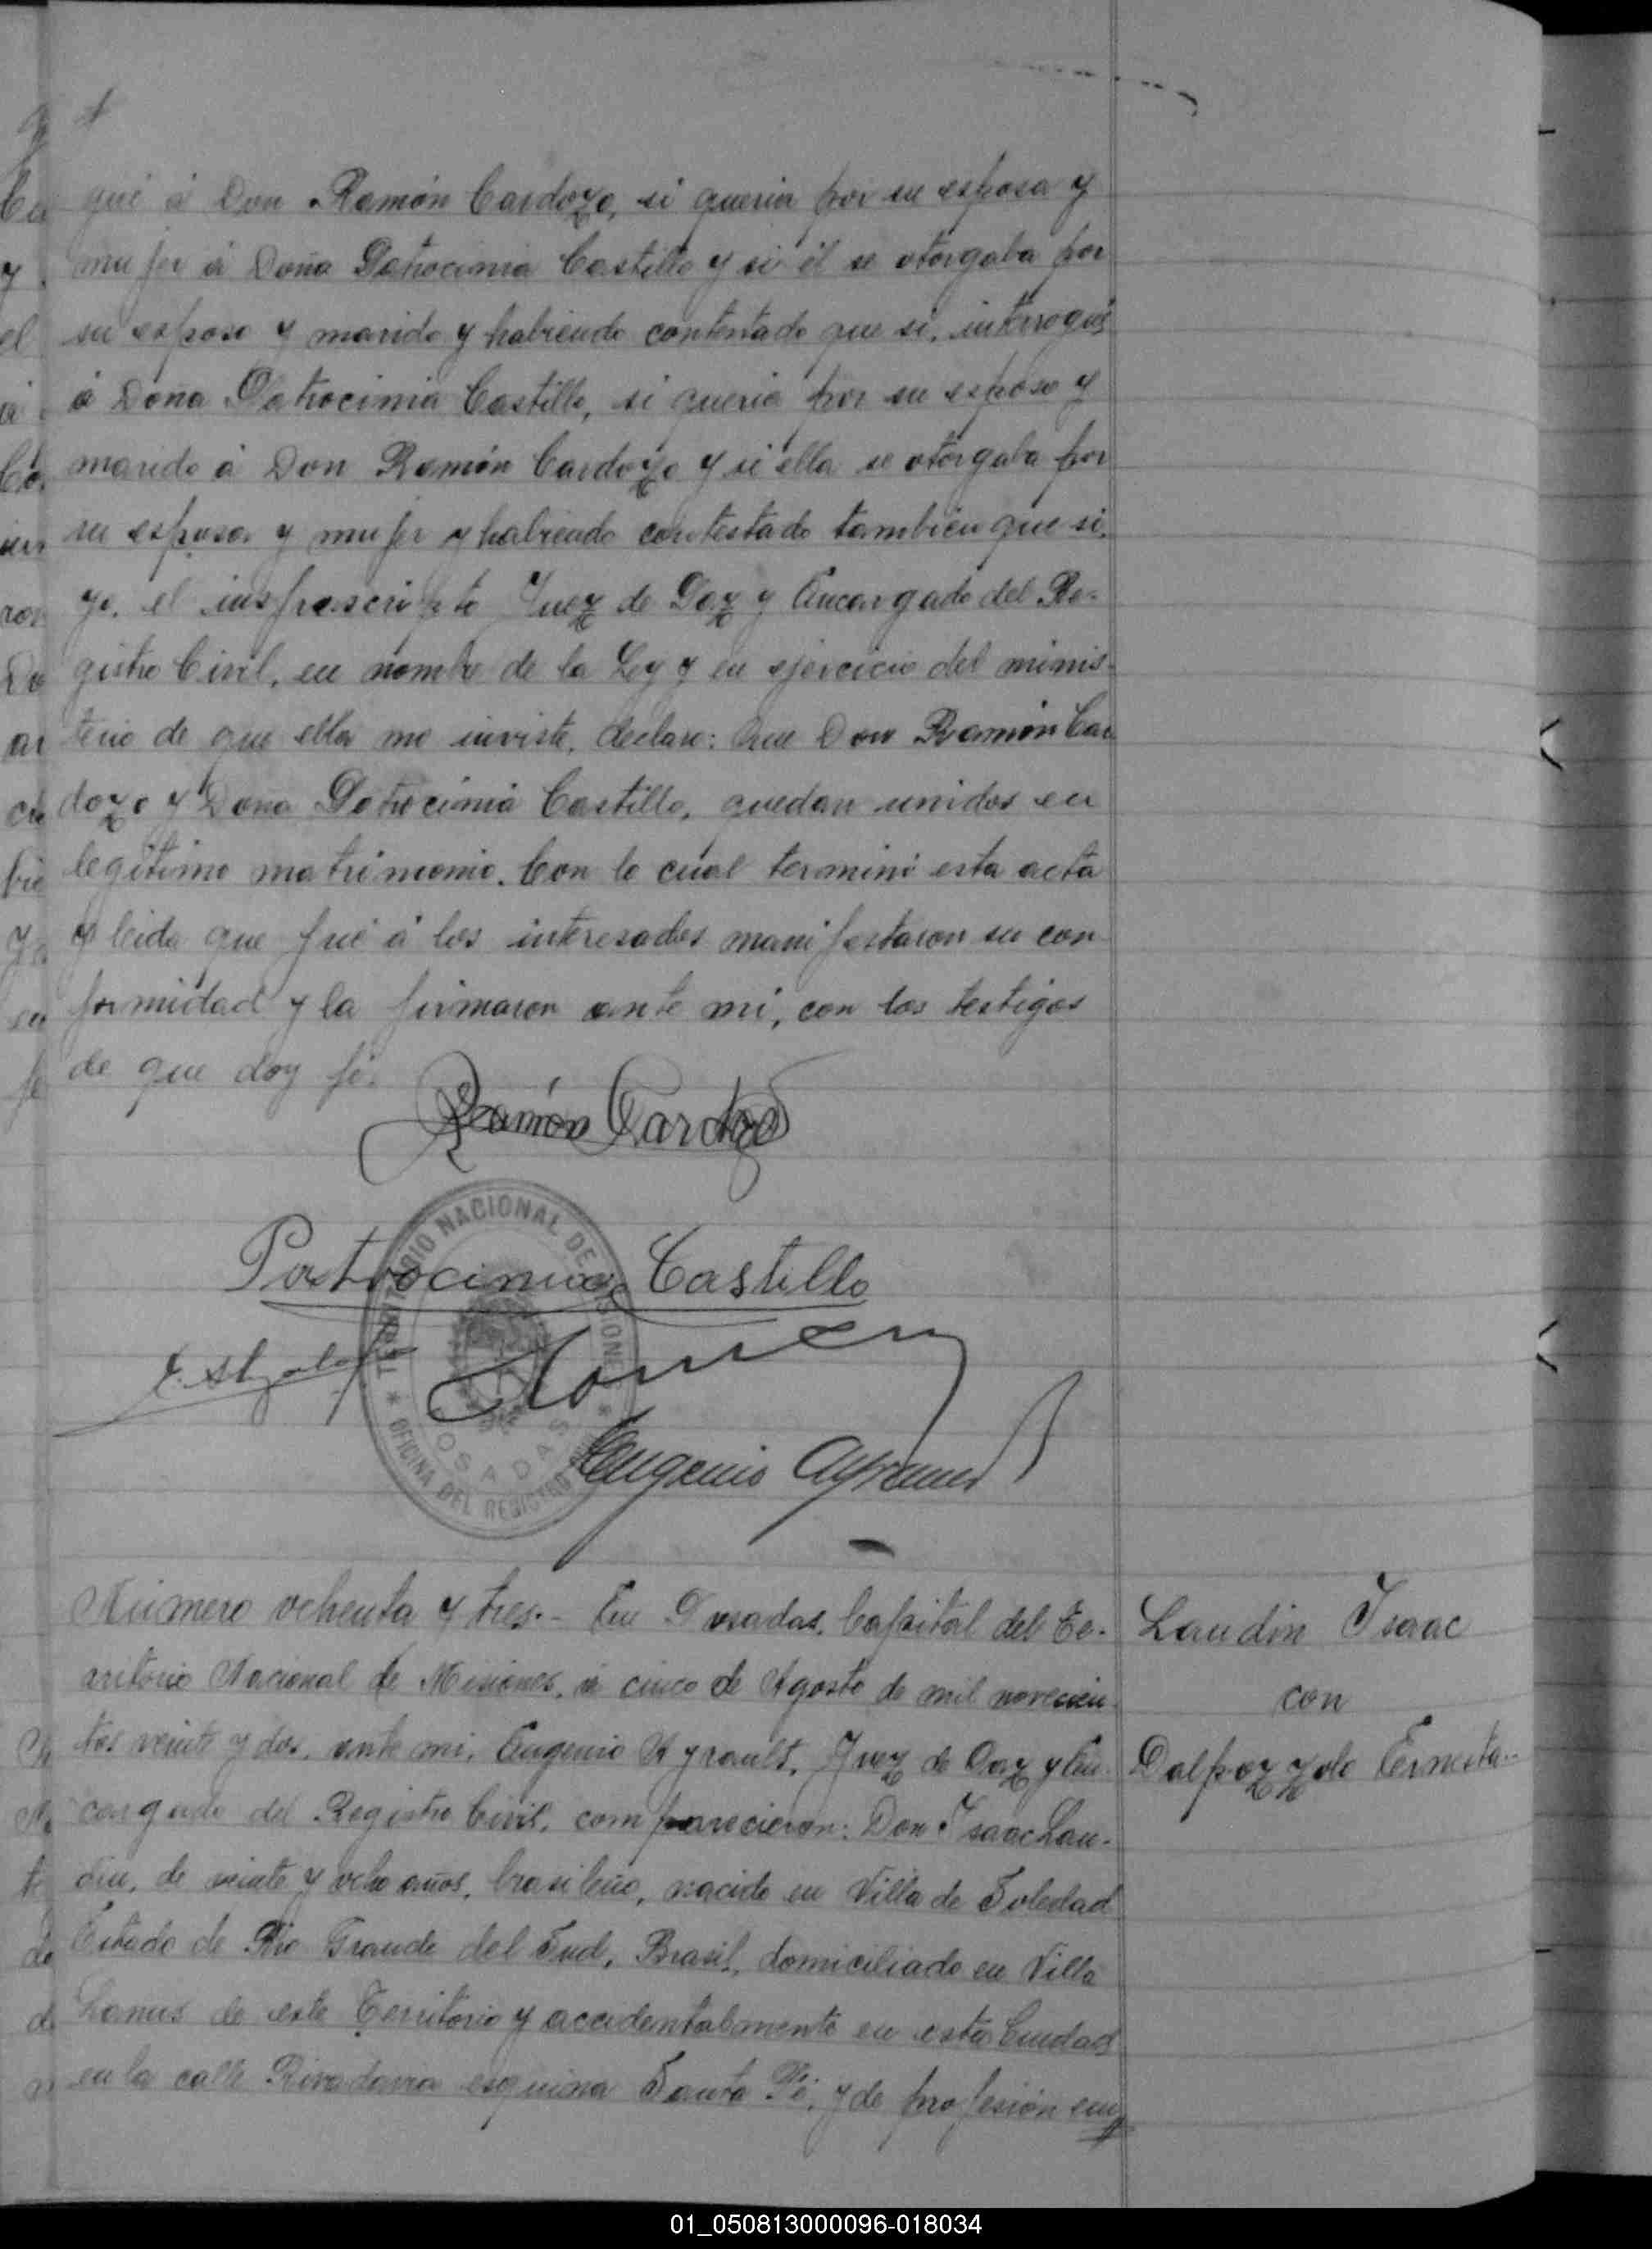 gué á Don Ramón Cardozo, si queria por su esposa y
mujer á Doña Patrocinia Castillo y si él se otorgaba por
su esposo y marido y habiendo contestado que si, interrogué
á Doña Patrocinia Castillo, si queria por su esposo y
marido á Don Ramón Cardozo y si ella se otorgaba por
su esposa y mujer y habiendo contestado tambien que si,
yo, el insfrascripto Juez de Paz y Encargado del Re-
gistro Civil, en nombre de la Ley y en ejercicio del minis-
terio de que ella me inviste, declaro: Que Don Ramón Car
dozo y Doña Patrocinia Castillo, quedan unidos en
legitimo matrimonio. Con lo cual terminó esta acta
y leida que fué á los interesados manifestaron su con
formidad y la firmaron ante mi, con los testigos
de que doy fé.
Ramón Cardozo
TERRITORIO NACIONAL DE MISIONES
Patrocinia Castillo
POSADAS
OFICINA DEL REGISTRO
Eugenio Ayrault
Número ochenta y tres.- En Posadas, Capital del Te-
rritorio Nacional de Misiones, á cinco de Agosto de mil novecien-
tos veinte y dos, ante mi, Eugenio Ayrault, Juez de Paz y En-
cargado del Registro Civil, comparecieron: Don Isaac Lau-
din, de veinte y ocho años, brasileño, nacido en Villa de Soledad
Estado de Rio Grande del Sud, Brasil, domiciliado en Villa
Lanus de este Territorio y accidentalmente en esta Ciudad
en la calle Rivadavia esquina Santa Fé, y de profesión em
Laudin Isaac
con
Dalpozzolo Ernesta
01_050813000096-018034